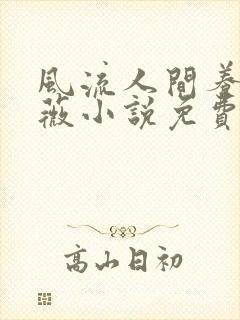 風流人間養
薇小說免費
高山日初